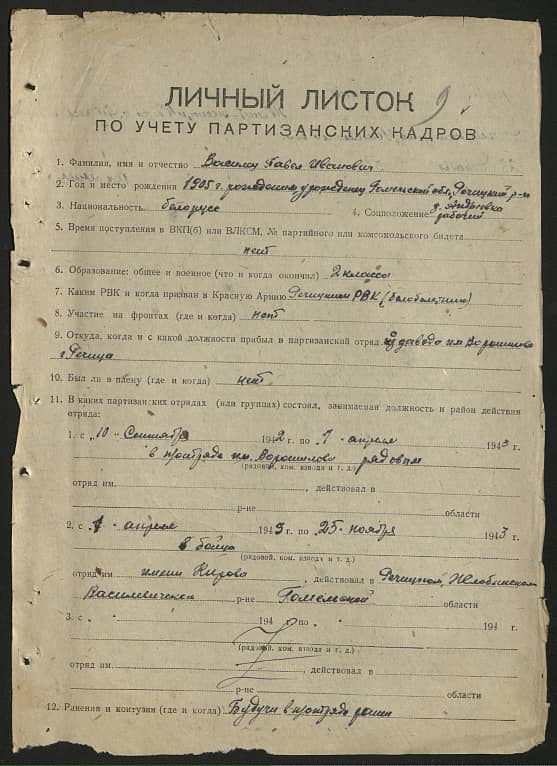 9
ЛИЧНЫЙ ЛИСТОК
ПО УЧЕТУ ПАРТИЗАНСКИХ КАДРОВ
1. Фамилия, имя и отчество Павел Иванович
2. Год и место рождения 1905 г. уроженец Гомельской обл. Речицкий р-н
д. Андреевка
3. Национальность белорус 4. Соцположение рабочий
5. Время поступления в ВКП(б) или ВЛКСМ, № партийного или комсомольского билета
нет
6. Образование: общее и военное (что и когда окончил) 2 класса
7. Каким РВК и когда призван в Красную Армию Речицким РВК
8. Участие на фронтах (где и когда) нет
9. Откуда, когда и с какой должности прибыл в партизанский отряд из завода им. Ворошилова
г. Речица
10. Был ли в плену (где и когда) нет
11. В каких партизанских отрядах (или группах) состоял, занимаемая должность и район действия
отряда:
1. с „10“ Сентября 1942 г. по 1 апреля 1943 г.
в п/отряде им. Ворошилова рядовым
(рядовой, ком. взвода и т. д.)
отряд им. , действовал в
р-не области
2. с 1 апреля 1943 г. по 25 ноября 1943 г.
бойца
(рядовой, ком. взвода и т. д.)
отряд им. имени Кирова , действовал в Речицком, Жлобинском
Василевичском р-не Гомельской области
3. с 194 г. по 194 г.
(рядовой, ком. взвода и т. д.)
отряд им. , действовал в
р-не области
12. Ранения и контузии (где и когда) Будучи в п/отряде ранен